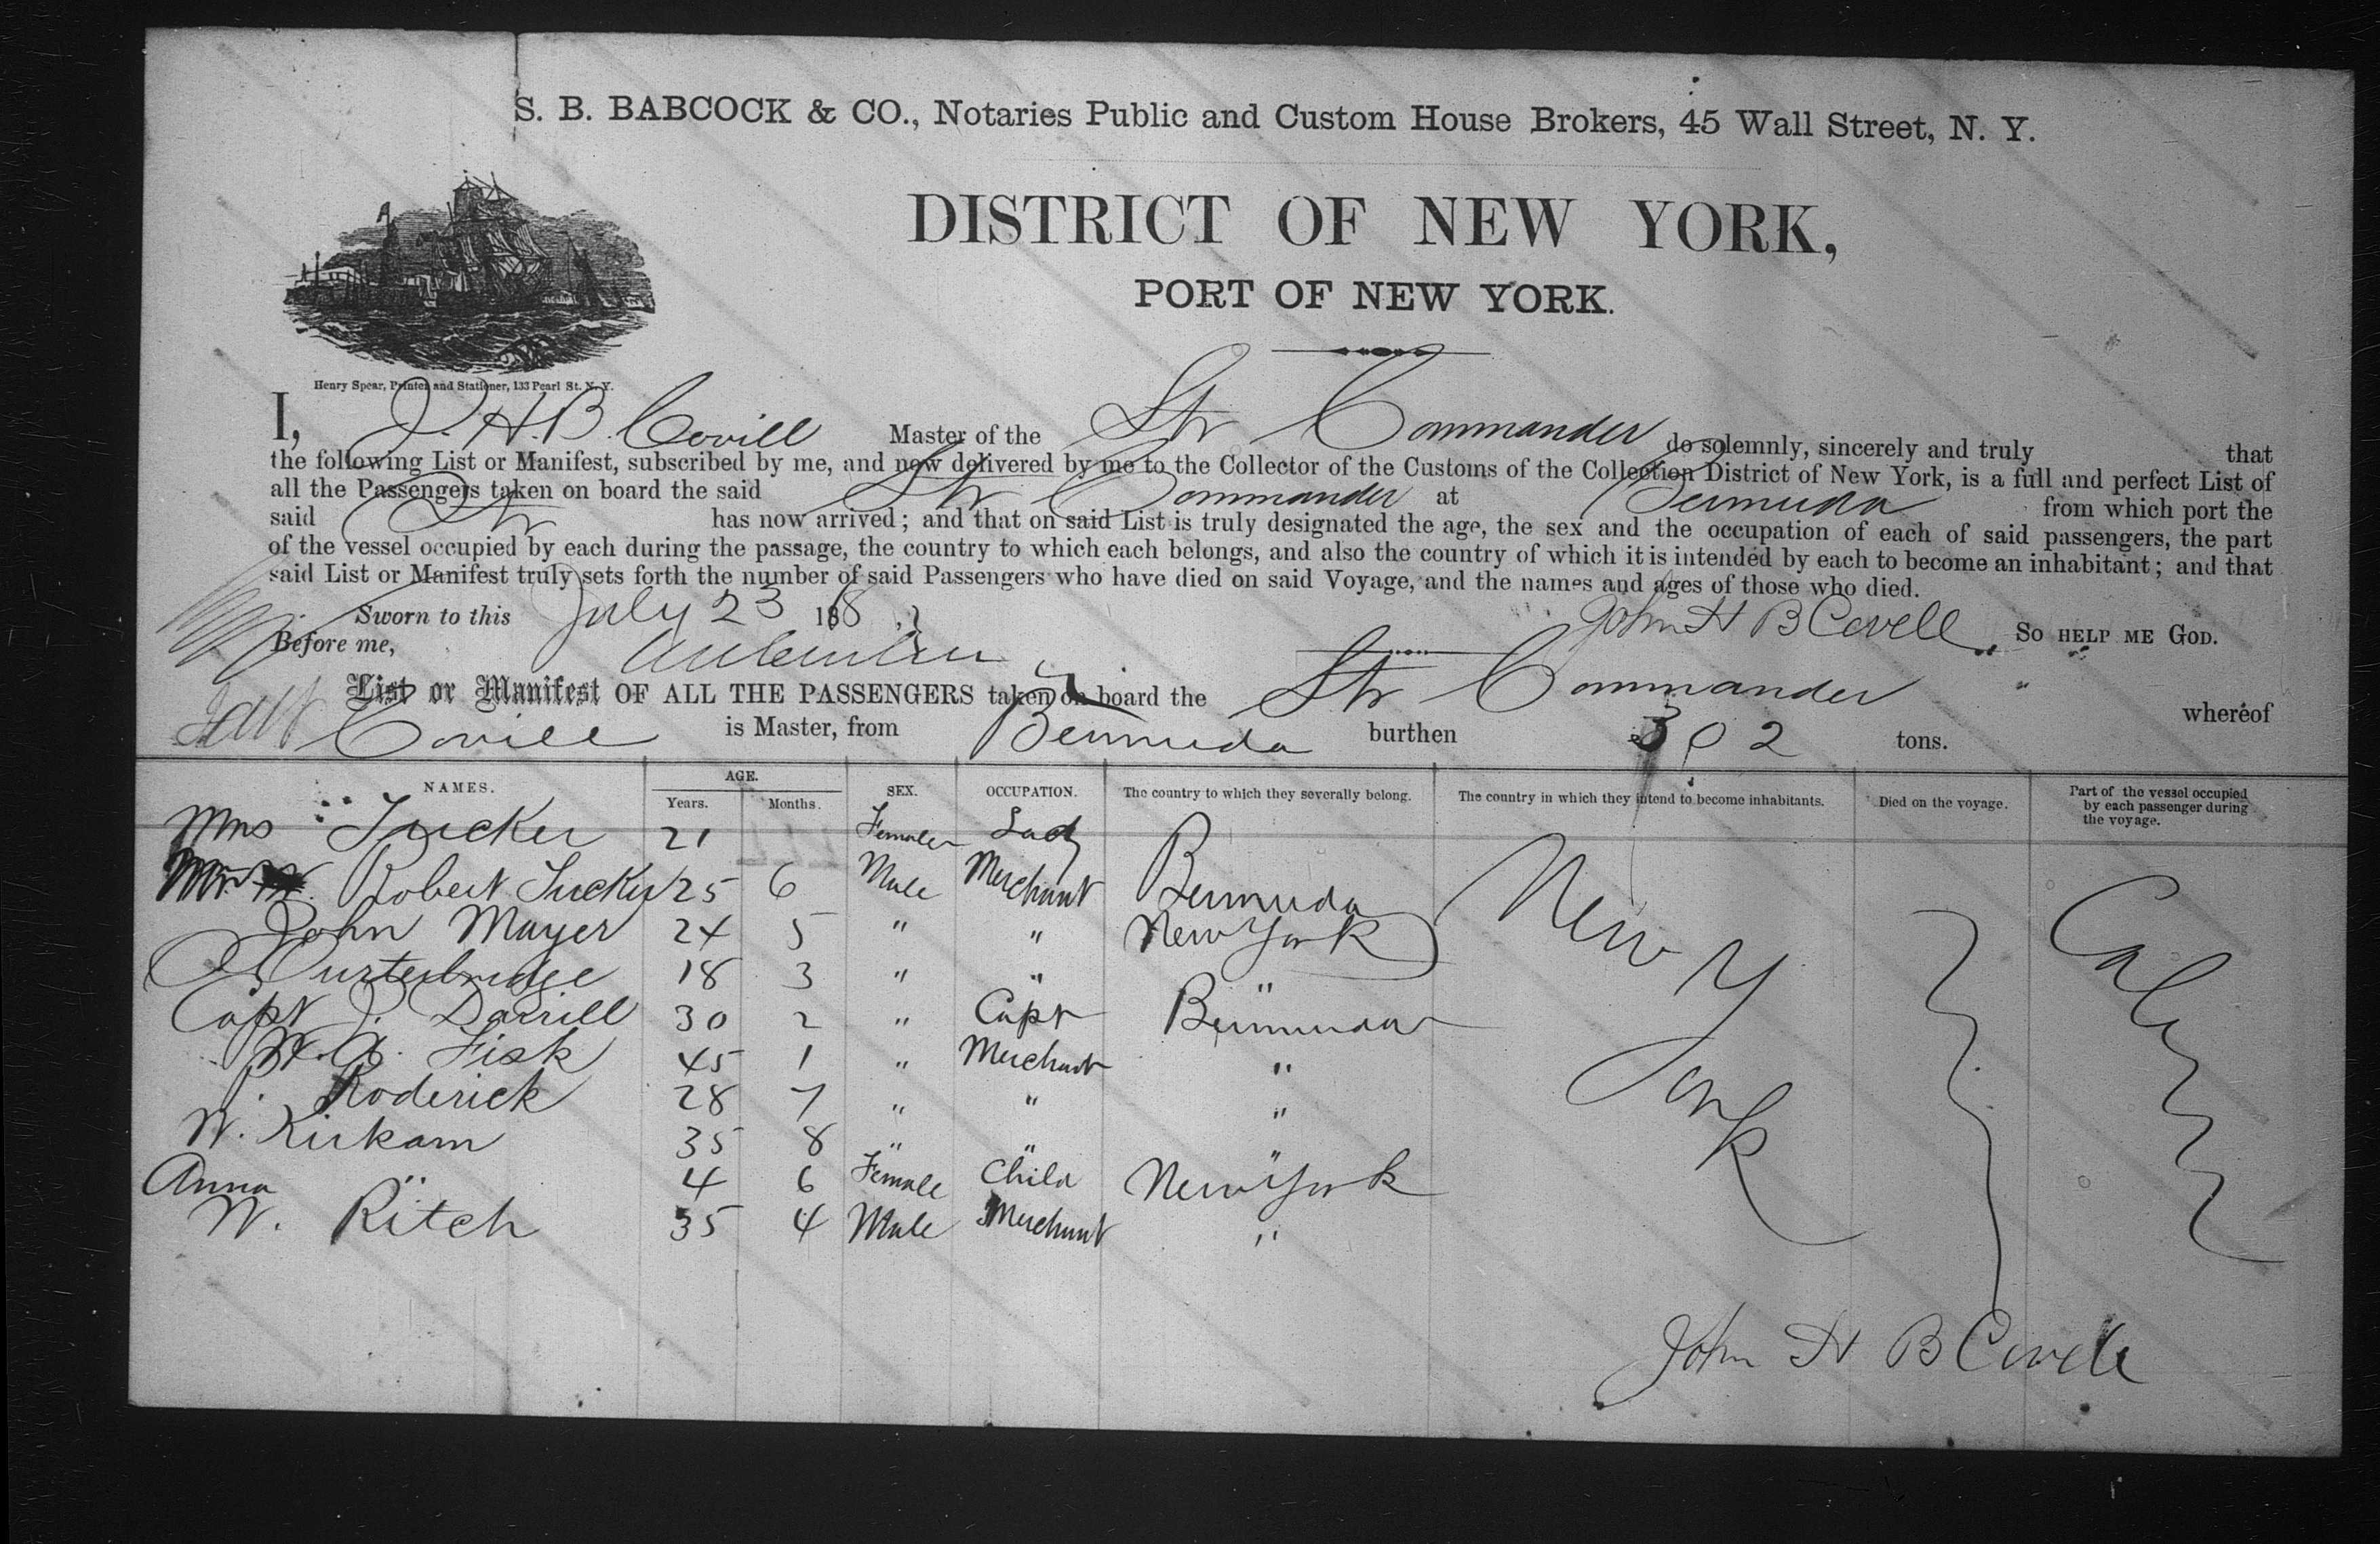 S. B. BABCOCK & CO., Notaries Public and Custom House Brokers, 45 Wall Street, N. Y.
DISTRICT OF NEW YORK,
PORT OF NEW YORK.
Henry Spear, Printer and Stationer, 133 Pearl St. N. Y.
I, J. H. B. Covill Master of the Str Commander do solemnly, sincerely and truly that
the following List or Manifest, subscribed by me, and now delivered by me to the Collector of the Customs of the Collection District of New York, is a full and perfect List of
all the Passengers taken on board the said Str Commander at Bermuda from which port the
said Str has now arrived; and that on said List is truly designated the age, the sex and the occupation of each of said passengers, the part
of the vessel occupied by each during the passage, the country to which each belongs, and also the country of which it is intended by each to become an inhabitant; and that
said List or Manifest truly sets forth the number of said Passengers who have died on said Voyage, and the names and ages of those who died.
Sworn to this July 23 186 John H B Covell So HELP ME GOD.
Before me,
List or Manifest OF ALL THE PASSENGERS taken on board the Str Commander whereof
Covill is Master, from Bermuda burthen 302 tons.
NAMES. AGE. Years. Months. SEX. OCCUPATION. The country to which they severally belong. The country in which they intend to become inhabitants. Died on the voyage. Part of the vessel occupied by each passenger during the voyage.
Mrs Tucker 21 Female Lady
Mr Robert Tucker 25 6 Male Merchant Bermuda New York
John Mayer 24 5 " " New York
Ourterbridge 18 3 " " "
Capt J. Darrill 30 2 " Capt Bermuda
Fisk 45 1 " Merchant "
Roderick 28 7 " " "
W. Kirkam 35 8 " " "
Anna " 4 6 Female Child New York
W. Ritch 35 4 Male Merchant "
John H B Covell